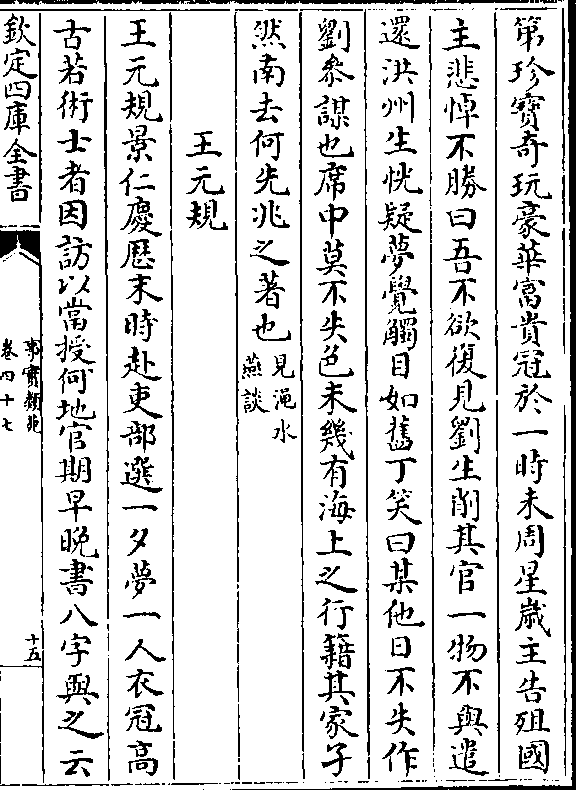 第珍寶奇玩豪華富貴冠於一時未周星歲主告殂國
主悲悼不勝曰吾不欲復見劉生削其官一物不與遣
還洪州生恍疑夢覺觸目如舊丁笑曰某他日不失作
劉參謀也席中莫不失色未幾有海上之行籍其家孑
然南去何先兆之著也見澠水燕談
王元規
王元規景仁慶厯末時赴吏部選一夕夢一人衣冠高
古若術士者因訪以當授何地官期早晚書八字與之云
欽定四庫全書
事實類苑
卷四十七
十五